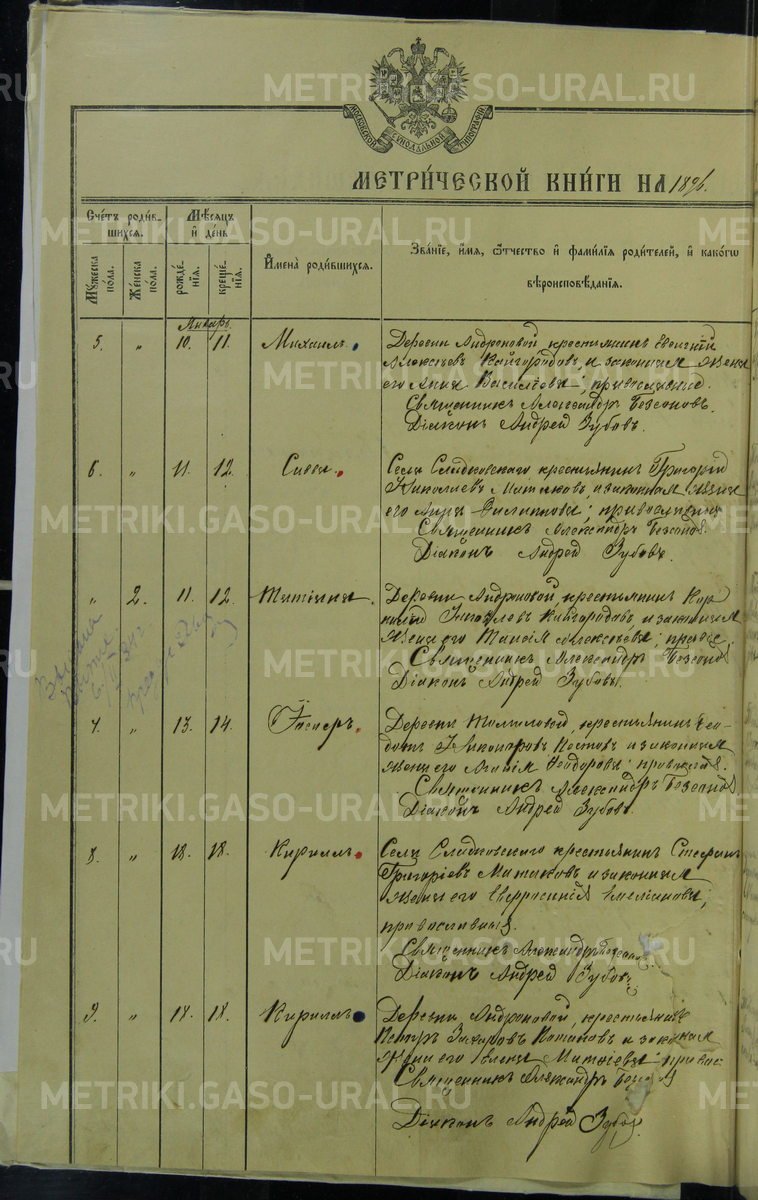 METRIKI.GASO-URAL.RU
МОСКОВСКОЙ СѴНОДАЛЬНОЙ ТИПОГРАФІИ
МЕТРИ́ЧЕСКОЙ КНИ́ГИ НА 1896.
Сче́тъ роди́вшихся.
Му́жеска по́ла.
Же́нска по́ла.
Мѣ́сяцъ и҆ де́нь
рожде́нїя.
креще́нїя.
И҆мена̀ роди́вшихся.
Зва́нїе, и҆́мя, ѻ҆́тчество и҆ фами́лїя роди́телей, и҆ како́гѡ
вѣроисповѣ́данїя.
Январь.
5. " 10. 11. Михаилъ.
Деревни Андроновой крестьянинъ
Алексѣевъ Кайгородовъ, и законная жена
его Анна Васильева; православные.
Священникъ Александръ Безсоновъ.
Діаконъ Андрей Зубовъ.
6. " 11. 12. Савва.
Села Сладковскаго крестьянинъ Григорій
Николаевъ и законная жена
его
Священникъ Александръ Безсонов
Діаконъ Андрей Зубовъ.
" 2. 11. 12. Татіана.
Деревни Андроновой, крестьянинъ Кор
нилій Кайгородовъ и законная
жена его Таисія Алексѣева; правос.
Священникъ Александръ Безсонов
Діаконъ Андрей Зубовъ.
7. " 13. 14.
Деревни крестьянинъ Ѳео-
дотъ Никаноровъ и законная
жена его Агапія Ѳеодорова; православ.
Священникъ Александръ Безсонов
Діаконъ Андрей Зубовъ.
8. " 18. 18. Кириллъ.
Села Сладковскаго крестьянинъ Стефанъ
Григоріевъ и законная
жена его Евфросинія Емеліанова;
православныя.
Священникъ Александръ
Діаконъ Андрей Зубовъ
9. " 18. 18. Кириллъ
Деревни Андроновой, крестьянинъ
Петръ Захаровъ Потаповъ и законная
жена его Елена правос:
Священникъ Александръ
Діаконъ Андрей Зубов